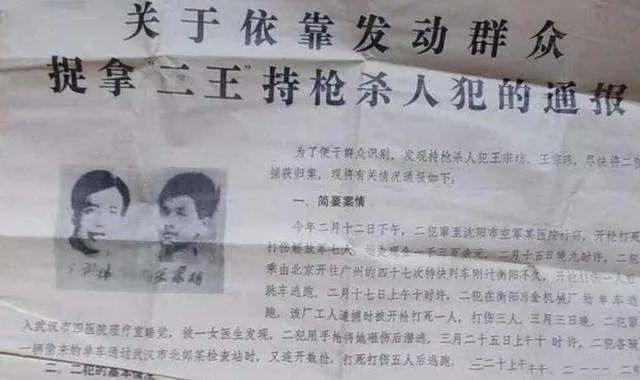 关于依靠发动群众
捉拿“二王”持枪杀人犯的通报
为了便于群众识别，发现持枪杀人犯王宗坊、王宗玮，尽快将二犯
捕获归案，现将有关情况通报如下：
一、简要案情
今年二月十二日下午，二犯窜至沈阳市空军某医院行窃，开枪打死
打伤解放军七人，抢走现金一千三百余元，二月十五日晚九时许，二犯
乘由北京开往广州的四十七次特快列车刚过衡阳不久，开枪打伤一人后
跳车逃跑，二月十七日上午十时许，二犯在衡阳冶金机械厂抢单车逃
跑，该厂工人追捕时被开枪打死一人，打伤三人，三月三日晚，二犯窜
入武汉市四医院理疗室睡觉，被一女医生发现，二犯用手枪将她砸伤后潜逃，三月二十五日上午十时许，二犯各骑
一辆偷来的单车通过武汉市北郊某检查站时，又连开数枪，打死打伤五人后逃跑，
二、二犯的基本情况